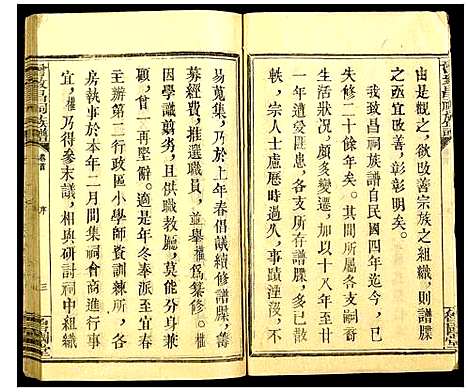 由是觀之，欲改善宗族之組織，則譜牒
之亟宜改善，彰彰明矣。
我致昌祠族譜自民國四年迄今，
失修二十餘年矣。其間所屬各支族
生活狀況，頗多變遷，加以十八年至廿
一年遭受匪患，各支所存譜牒，多已散
帙，宗人士慮歷時過久，事蹟湮沒，不
易蒐集，乃於上年春倡議續修譜牒，籌
募經費，推選職員，並舉權爲纂修。權
因學識翦劣，且供職教廳，莫能分身兼
顧，一再堅辭。適是年冬奉派至宜春
主辦第二行政區小學師資訓練所，各
房執事於本年二月間集祠會商進行事
宜，權乃得參末議，相與研討祠中組織
曾致昌祠族譜
卷首
序
三